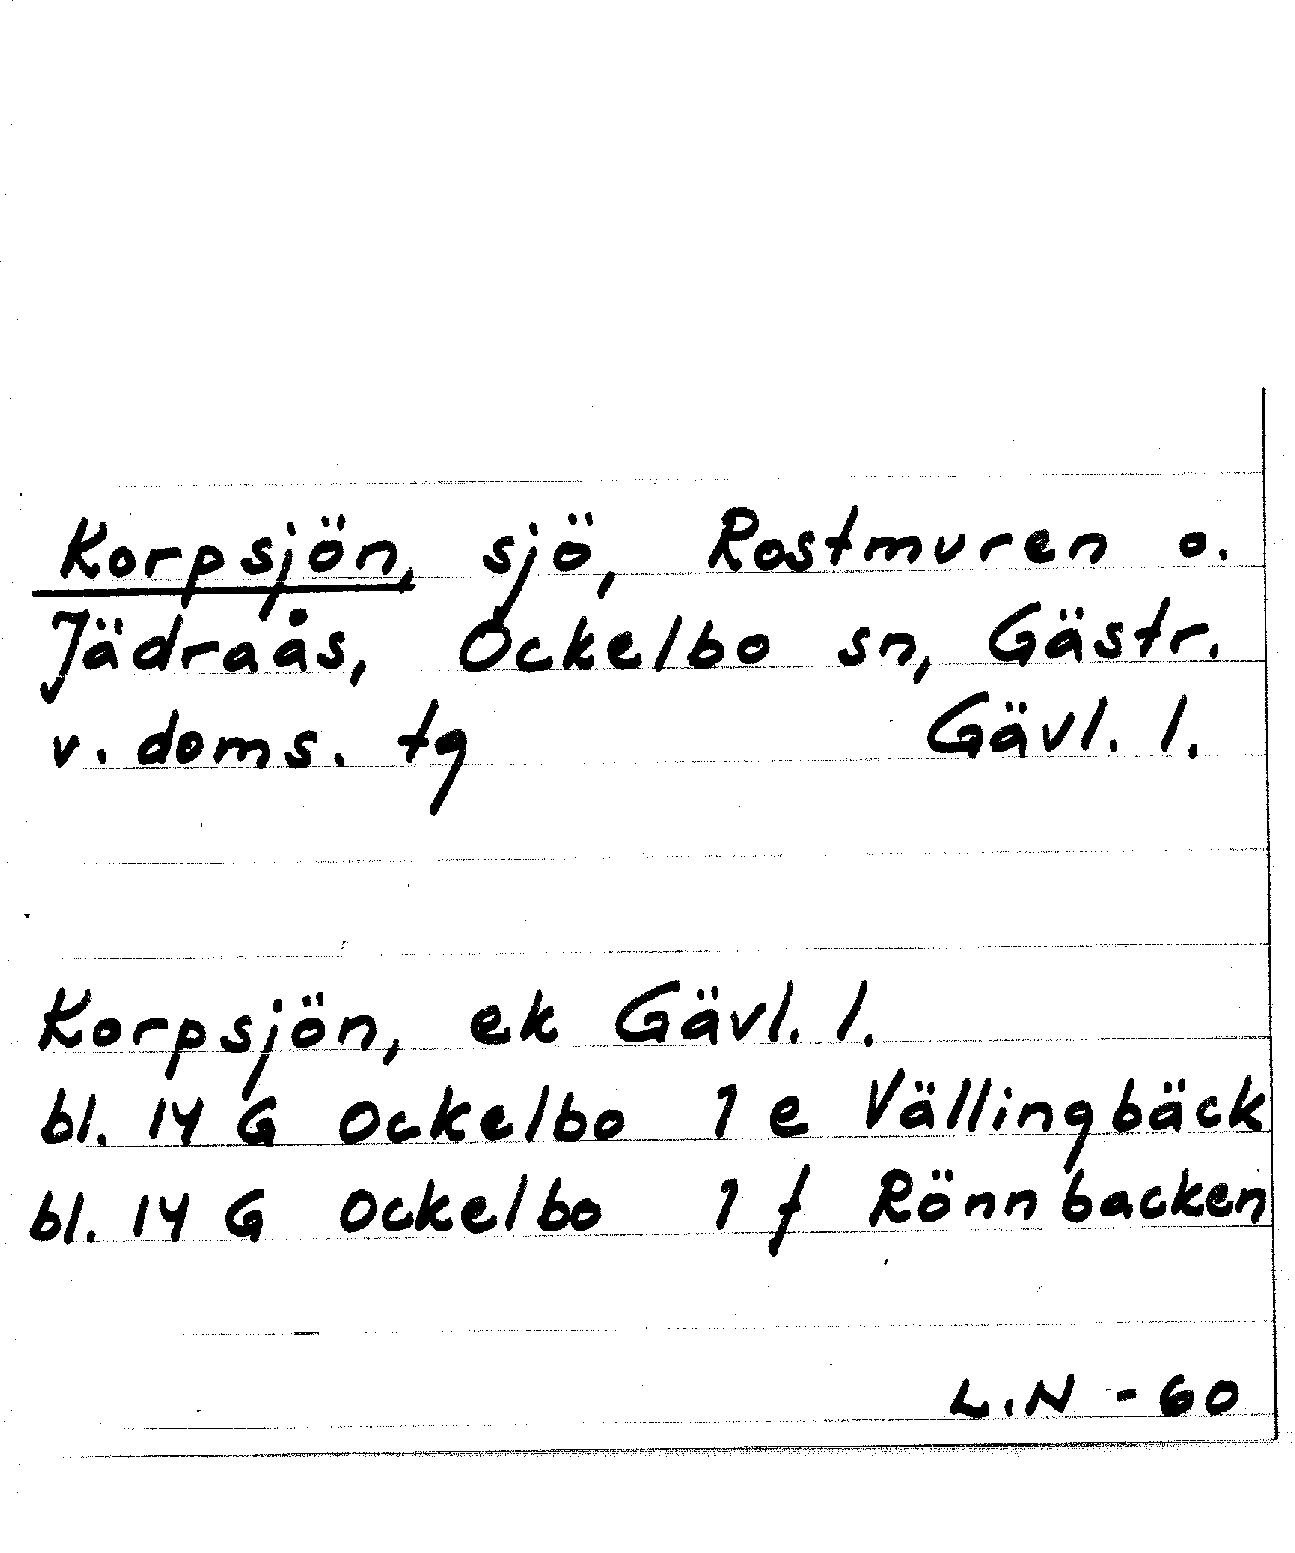 Korpsjön, sjö, Rostmuren o.
Jädraås, Ockelbo sn, Gästr.
v. doms. tg Gävl. l.
Korpsjön, ek Gävl. l.
bl. 14 G Ockelbo 1 e Vällingbäck
bl. 14 G Ockelbo 1 f Rönnbacken
L.N - 60